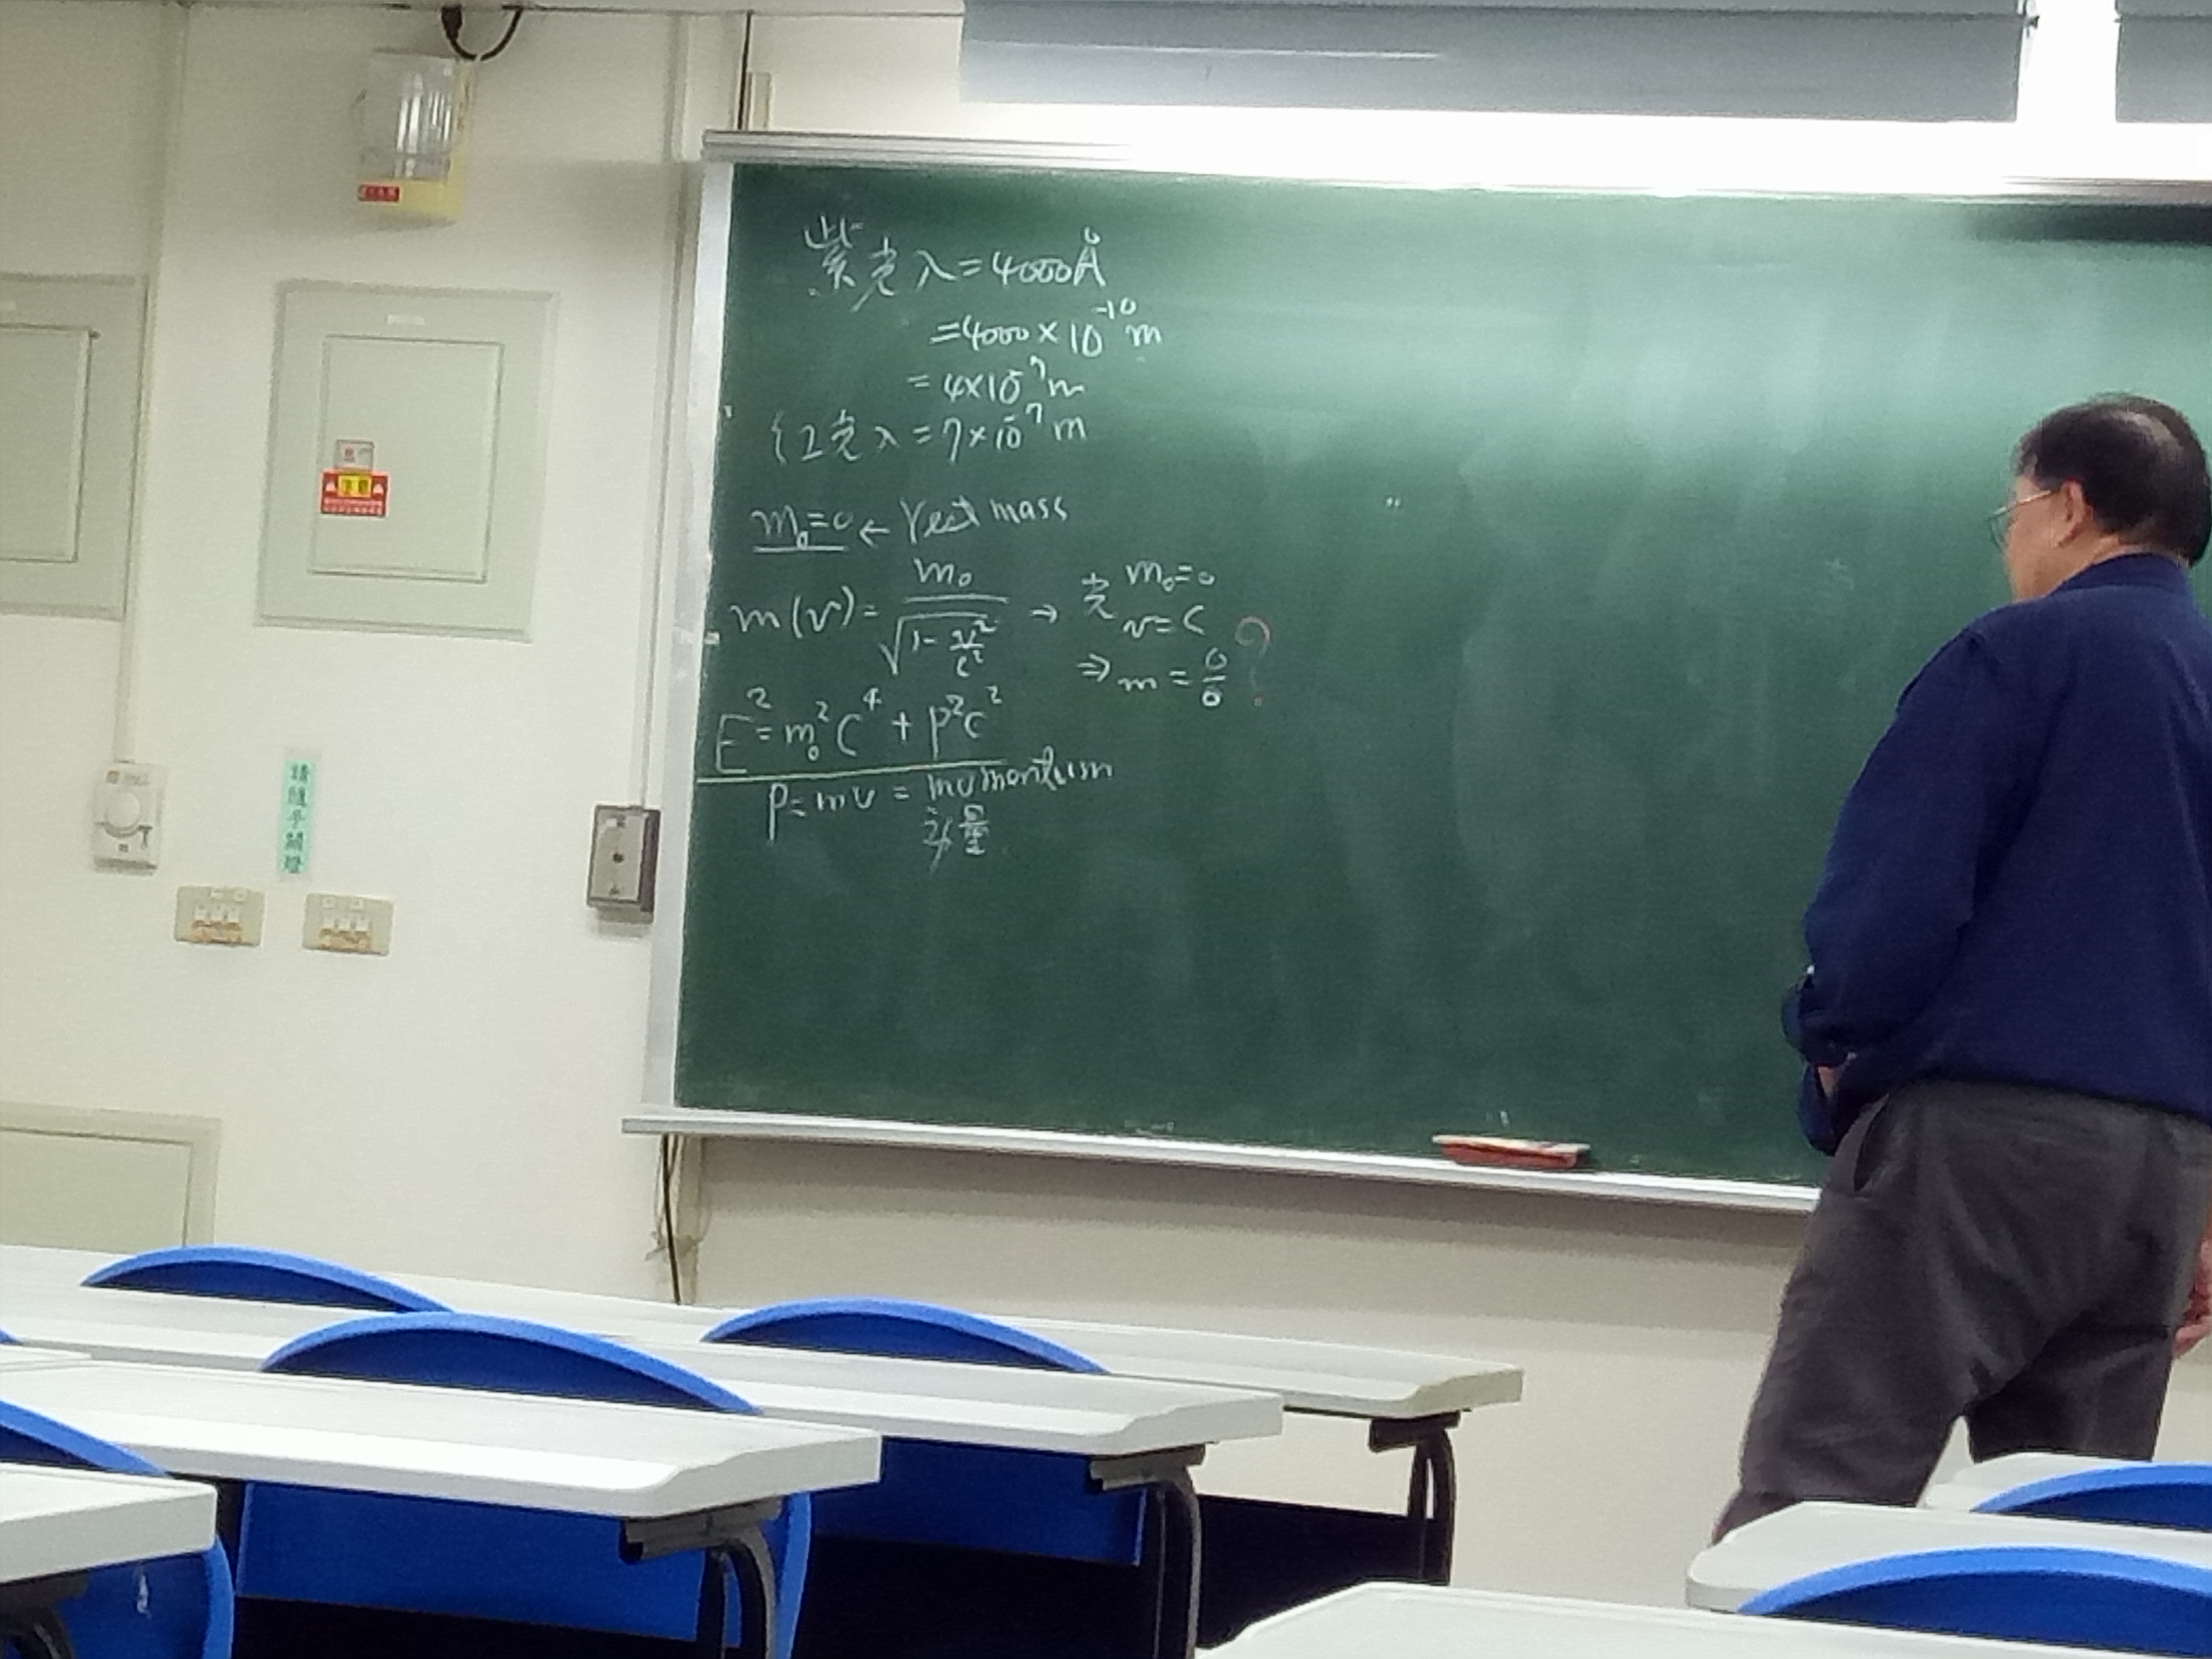 紫光 λ = 4000Å
= 4000 × 10⁻¹⁰ m
= 4×10⁻⁷ m
紅光 λ = 7×10⁻⁷ m
m₀=0 ← rest mass
m(v) = m₀ / √(1 - v²/c²) → 光 m₀=0
v=c
⇒ m = 0/0 ?
E² = m₀²C⁴ + P²C²
P = mv = momentum
動量
請隨手關燈